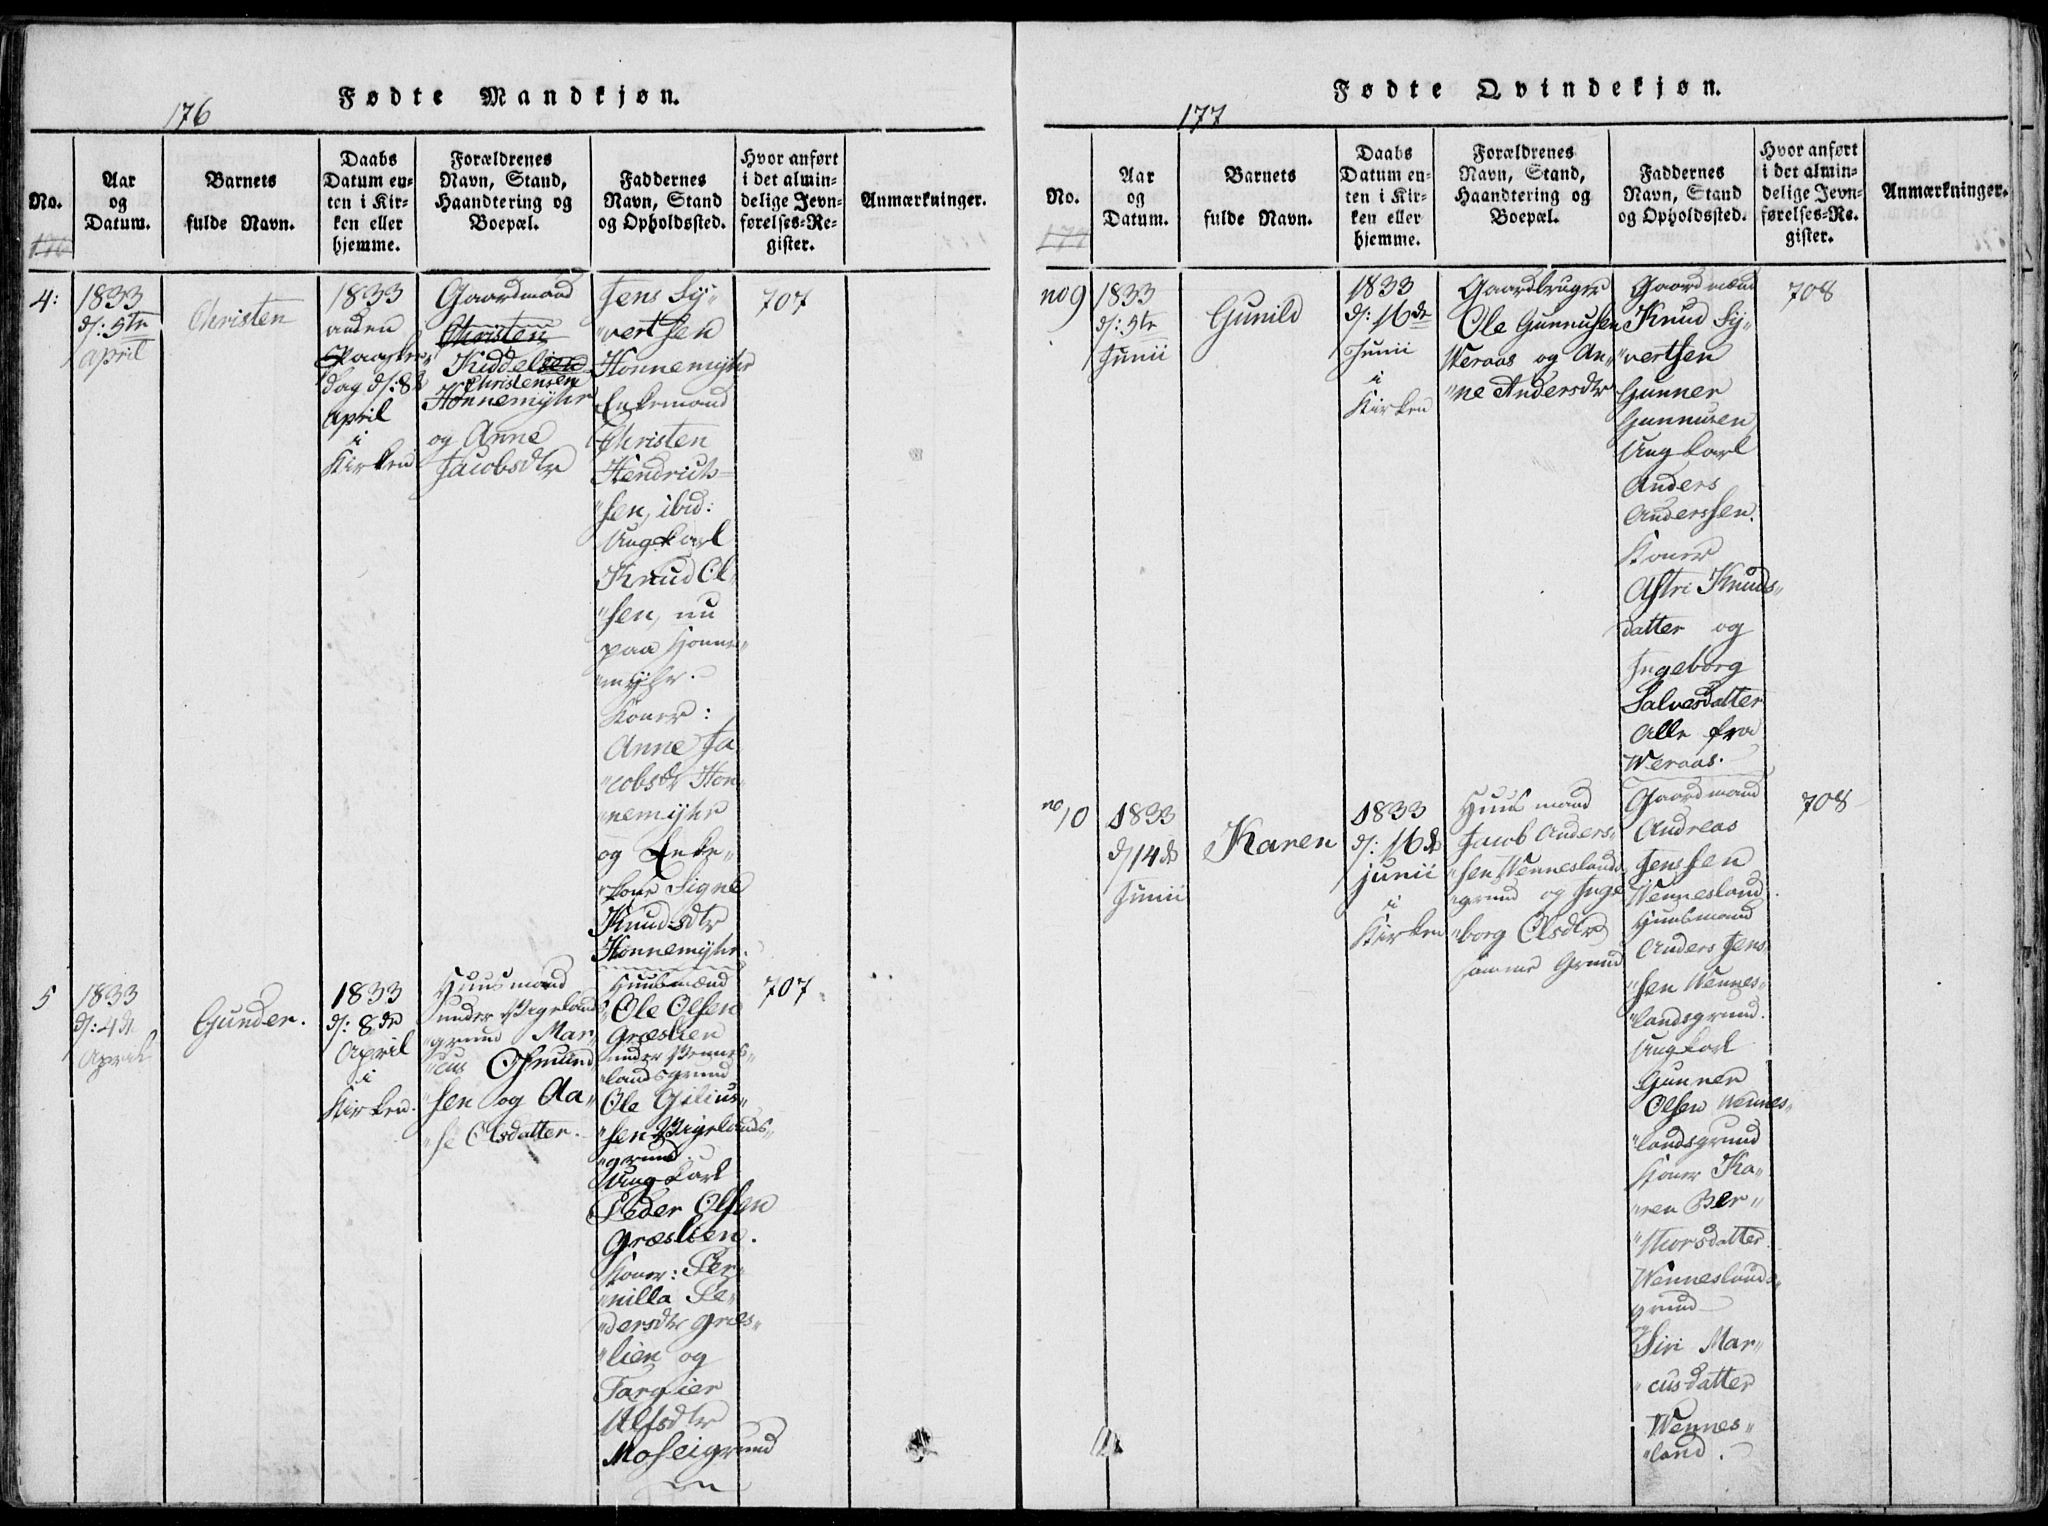 Fødte Mandkjøn.
176
No.
176
Aar
og
Datum.
Barnets
fulde Navn.
Daabs
Datum en-
ten i Kir-
ken eller
hjemme.
Forældrenes
Navn, Stand,
Haandtering og
Boepæl.
Faddernes
Navn, Stand
og Opholdssted.
Hvor anført
i det almin-
delige Jevn-
førelses-Re-
gister.
Anmærkninger.
4:
1833
d/: 5te
April
Christen
1833
anden
Paaske-
dag d/: 8de
April
i
Kirken
Gaardmand
Christen
Kiddelsen
Christensen
Honnemyhr
og Anne
Jacobsdtr
Jens Sy-
"vertsen
Honnemyhr
Enkemand
Christen
Hendrich-
"sen, ibid:
Ungkarl
Knud Ol-
"sen, nu
paa Honne-
"myhr.
Koner:
Anne Ja-
"cobsdtr Hon-
"nemyhr
og Enke-
"kone Signe
Knudsdtr
Honnemyhr.
707
5
1833
d/: 4de
April
Gunder.
1833
d/: 8de
April
i
Kirken.
Huusmand
under Vigelands-
"grund Mar-
"cus Osmund-
"sen og Aa-
"se Olsdatter.
Huusmænd
Ole Olsen
Græslien
under Vennes-
"landsgrund
Ole Gilius-
"sen Vigelands-
"grund.
Ungkarl
Peder Olsen
Græslien.
Koner: Per-
"nilla Pe-
"dersdtr Græs-
"lien og
Targier
Alfsdtr
Moseigrund
707
Fødte Qvindekjøn.
177
No.
177
Aar
og
Datum.
Barnets
fulde Navn.
Daabs
Datum en-
ten i Kir-
ken eller
hjemme.
Forældrenes
Navn, Stand,
Haandtering og
Boepæl.
Faddernes
Navn, Stand
og Opholdssted.
Hvor anført
i det almin-
delige Jevn-
førelses-Re-
gister.
Anmærkninger.
no 9
1833
d/: 5te
Junii
Gunild
1833
d/: 16de
Junii
i
Kirken
Gaardbruger
Ole Gunnusen
Weraas og An-
"ne Andersdtr
Gaardmænd
Knud Sy-
"vertsen
Gunner
Gunnusen
Ungkarl
Anders
Anderssen.
Koner
Astri Knuds-
datter og
Ingeborg
Salvesdatter
Alle fra
Weraas.
708
no 10
1833
d/ 14de
Junii
Karen
1833
d/: 16de
junii
i
Kirken
Huusmand
Jacob Anders-
"sen Wenneslands-
"grund og Inge-
"borg Olsdtr
samme Grund
Gaardmand
Andreas
Jenssen
Wennesland.
Huusmand
Anders Jens-
"sen Wennes-
"landsgrund.
Ungkarl
Gunner
Olsen Wennes-
"landsgrund
Koner Ka-
"ren Ber-
"thorsdatter
Wenneslands-
grund
og
Siri Mar-
"cusdatter
Wennes-
"land.
708